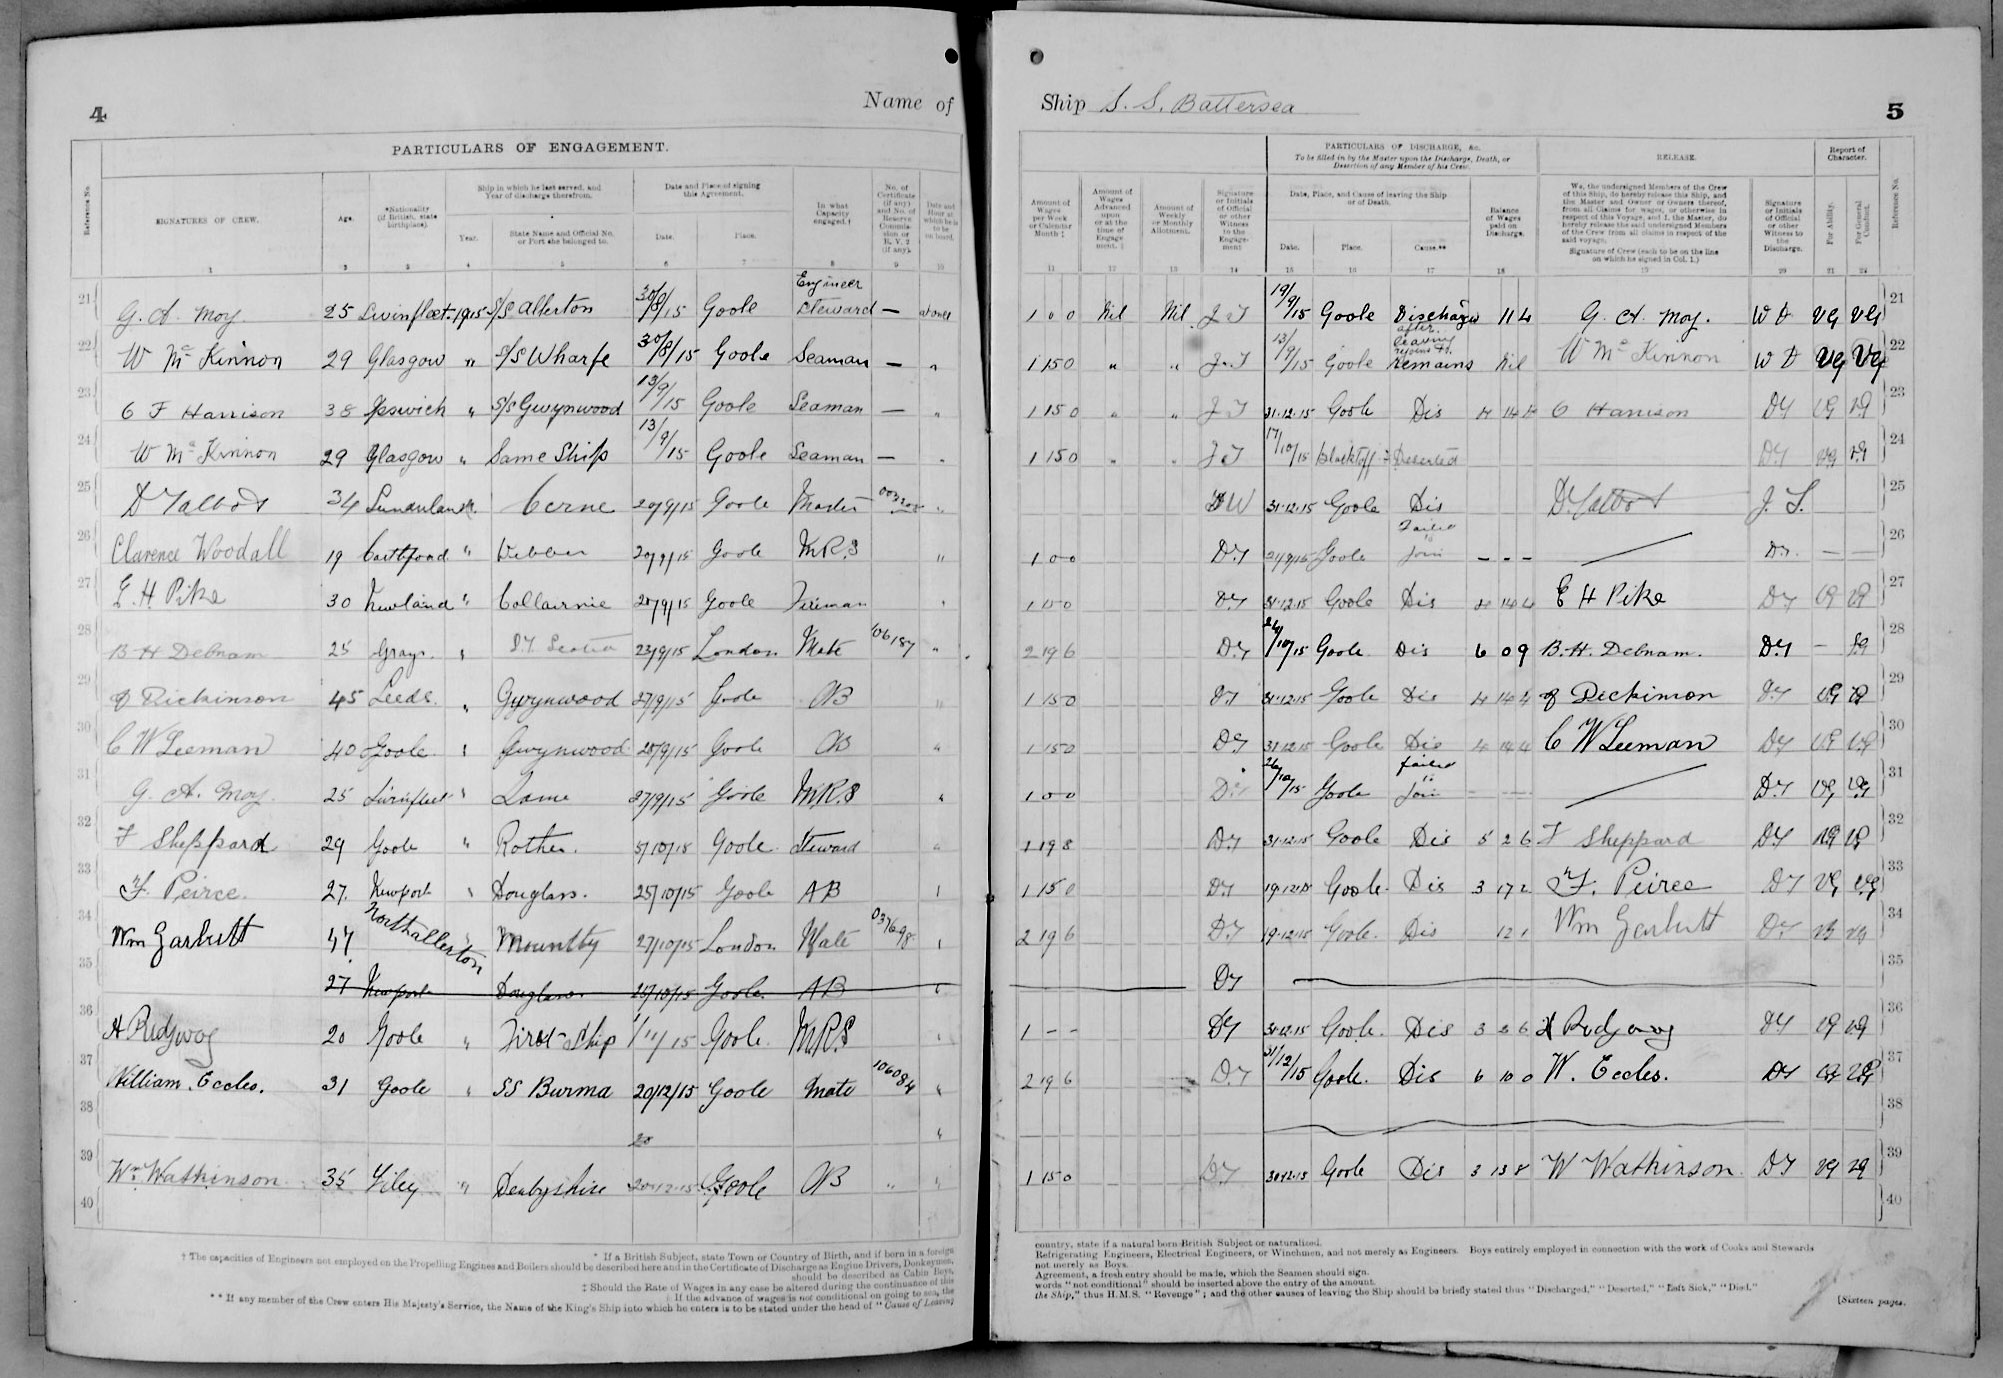 4
Name of
PARTICULARS OF ENGAGEMENT.
Reference No.
SIGNATURES OF CREW.
Age.
*Nationality (if British, state birthplace).
Ship in which he last served, and Year of discharge therefrom.
Year.
State Name and Official No. or Port she belonged to.
Date and Place of signing this Agreement.
Date.
Place.
In what Capacity engaged.†
No. of Certificate (if any) and No. of Reserve Commission or R. V. 2 (if any).
Date and Hour at which he is to be on board.
1 2 3 4 5 6 7 8 9 10
21 G. A. Moy. 25 Swinfleet 1915 S/S Allerton 30/8/15 Goole Engineer Steward — above
22 W McKinnon 29 Glasgow " S/S Wharfe 30/8/15 Goole Seaman — "
23 C F Harrison 38 Ipswich " S/S Gwynwood 13/9/15 Goole Seaman — "
24 W McKinnon 29 Glasgow " Same Ship 13/9/15 Goole Seaman — "
25 D Talbot 34 Sunderland Cerne 20/9/15 Goole Master "
26 Clarence Woodall 19 Castleford " Webber 20/9/15 Goole M.R.S "
27 E. H. Pike 30 Newland " Collairnie 20/9/15 Goole Fireman "
28 B H Debnam 25 Grays " 23/9/15 London Mate 106187 "
29 Dickinson 45 Leeds. " Gwynwood 27/9/15 Goole AB "
30 C W Leeman 40 Goole " Gwynwood 28/9/15 Goole AB "
31 G. A. Moy. 25 Swinfleet " Same 27/9/15 Goole M.R.S "
32 F Sheppard 29 Goole " Rother. 5/10/15 Goole Steward "
33 F. Peirce. 27. Newport " Douglass. 25/10/15 Goole AB "
34 Wm Garbutt 47 Northallerton " Mountby 27/10/15 London Mate 037698 "
35 27 Newport Douglass 25/10/15 Goole AB "
36 A Ridgway 20 Goole " First Ship 1/11/15 Goole. M.R.S "
37 William. Eccles. 31 Goole " SS Burma 20/12/15 Goole Mate 106084 "
38 20 "
39 Wm. Watkinson 35 Filey " Derbyshire 20.12.15 Goole AB " "
40
* If a British Subject, state Town or Country of Birth, and if born in a foreign
† The capacities of Engineers not employed on the Propelling Engines and Boilers should be described here and in the Certificate of Discharge as Engine Drivers, Donkeymen,
should be described as Cabin Boys,
‡ Should the Rate of Wages in any case be altered during the continuance of this
If the advance of wages is not conditional on going to sea, the
** If any member of the Crew enters His Majesty's Service, the Name of the King's Ship into which he enters is to be stated under the head of "Cause of Leaving
Ship S. S. Battersea
5
Amount of Wages per Week or Calendar Month ‡
Amount of Wages Advanced upon or at the time of Engagement.
Amount of Weekly or Monthly Allotment.
Signature or Initials of Official or other Witness to the Engagement
PARTICULARS OF DISCHARGE, &c.
To be filled in by the Master upon the Discharge, Death, or Desertion of any Member of his Crew.
Date, Place, and Cause of leaving the Ship or of Death.
Date.
Place.
Cause.**
Balance of Wages paid on Discharge.
RELEASE.
We, the undersigned Members of the Crew of this Ship, do hereby release this Ship, and the Master and Owner or Owners thereof, from all Claims for wages, or otherwise in respect of this Voyage, and I, the Master, do hereby release the said undersigned Members of the Crew from all claims in respect of the said voyage.
Signature of Crew (each to be on the line on which he signed in Col. 1.)
Signature or Initials of Official or other Witness to the Discharge.
Report of Character.
For Ability.
For General Conduct.
Reference No.
11 12 13 14 15 16 17 18 19 20 21 22
1 0 0 Nil Nil J T 19/9/15 Goole Discharge 11 4 G. A. Moy. W D VG VG 21
1 15 0 " " J.T 13/9/15 Goole Remains Nil W McKinnon W D VG VG 22
1 15 0 " " J T 31.12.15 Goole Dis 4 14 4 C Harrison DT VG VG 23
1 15 0 " " J.T 17/10/15 Blacktoft Deserted DT VG VG 24
DW 31.12.15 Goole Dis D. Talbot J. T. 25
1 0 0 D.T Goole Failed to Join - - - D.T. — — 26
1 15 0 D.T 31.12.15 Goole Dis 4 14 4 E H Pike DT VG VG 27
2 19 6 D.T 26/10/15 Goole. Dis 6 0 9 B. H. Debnam. D.T — VG 28
1 15 0 DT 31.12.15 Goole Dis 4 14 4 Dickinson DT VG VG 29
1 15 0 DT 31.12.15 Goole Dis 4 14 4 C W Leeman DT VG VG 30
1 0 0 DT 26/10/15 Goole failed to Join - - - D.T VG VG 31
1 19 8 DT 31.12.15 Goole Dis 5 2 6 F Sheppard DT VG VG 32
1 15 0 DT 19.12.15 Goole. Dis 3 17 2 F. Peirce DT VG VG 33
2 19 6 DT 19.12.15 Goole. Dis 12 1 Wm Garbutt DT VG VG 34
DT 35
1 - - DT 31.12.15 Goole. Dis A Ridgway DT VG VG 36
2 19 6 D.T 31/12/15 Goole. Dis 6 10 0 W. Eccles. DT VG VG 37
38
1 15 0 DT 30.12.15 Goole Dis 3 13 8 W Watkinson. DT VG VG 39
40
country, state if a natural born British Subject or naturalised.
Refrigerating Engineers, Electrical Engineers, or Winchmen, and not merely as Engineers. Boys entirely employed in connection with the work of Cooks and Stewards
not merely as Boys.
Agreement, a fresh entry should be made, which the Seamen should sign.
words "not conditional" should be inserted above the entry of the amount.
the Ship," thus H.M.S. "Revenge"; and the other causes of leaving the Ship should be briefly stated thus "Discharged," "Deserted," "Left Sick," "Died."
[Sixteen pages.